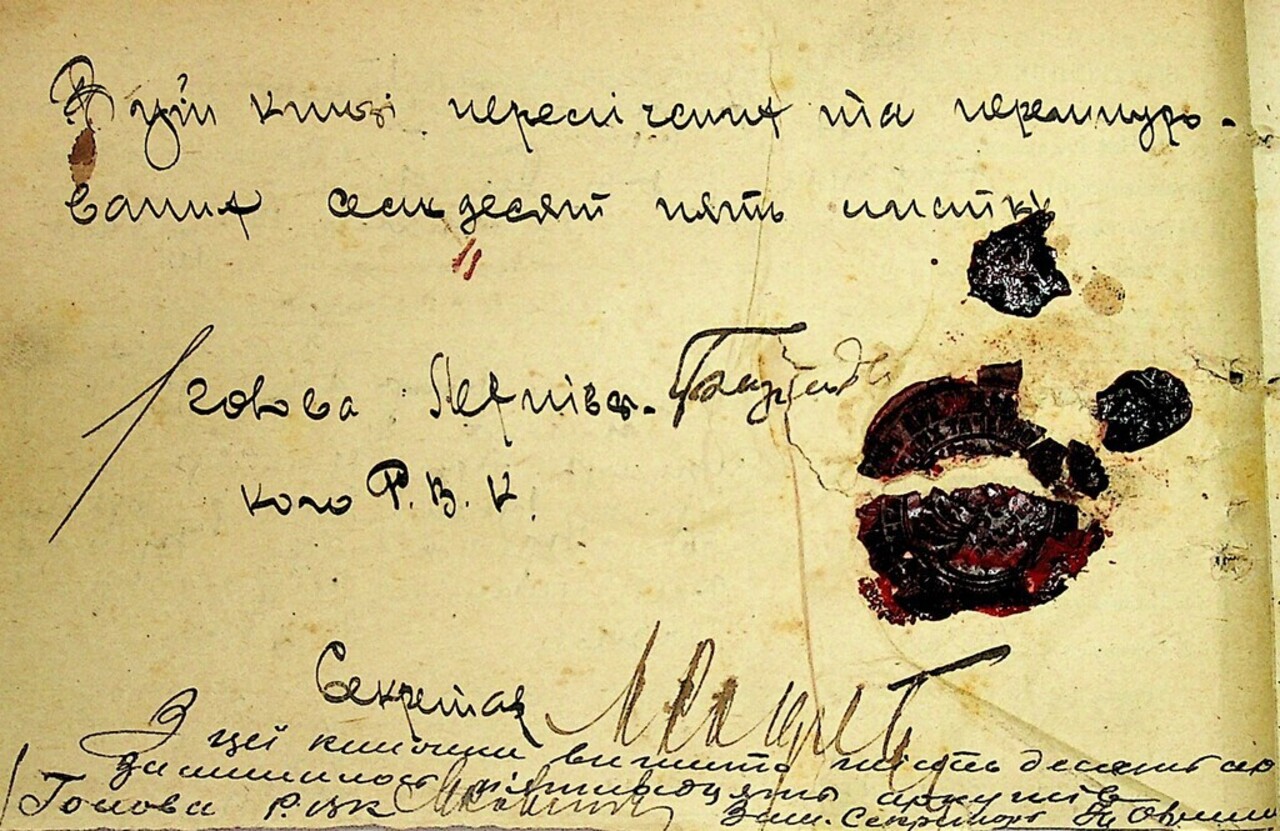 В цій книзі пересічених та перешнуро-
ваних семдесят пять листків
Голова Лехнівсь-
кого Р.В.К.
Секретар
З цеї книжки вишито шість десять
залишилось пятнадцять аркушів
Голова Р.ВК Зам. Секретаря